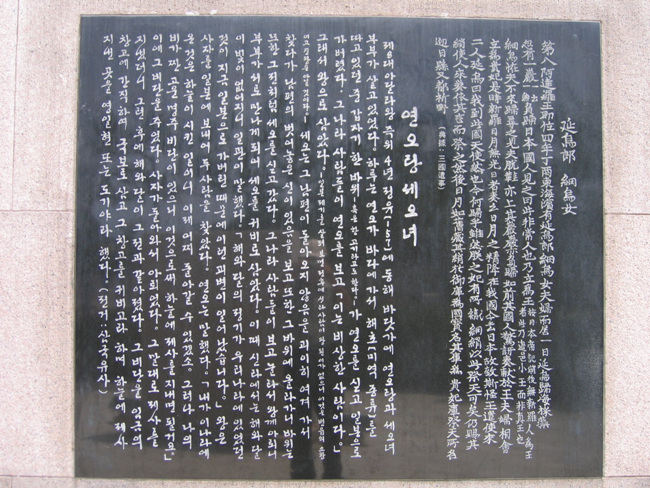 延烏郞 細烏女
第八阿達羅王卽位四年丁酉東海濱有延烏郞細烏女夫婦而居一日延烏歸海採藻
忽有一巖一云一魚負歸日本國人見之曰此非常人也乃立爲王按日本帝記前後無新羅人爲王者此乃邊邑小王而非眞王也
細烏恠夫不來歸尋之見夫脫鞋亦上其巖巖亦負歸如前其國人驚訝奏獻於王夫婦相會
立爲貴妃是時新羅日月無光日者奏云日月之精降在我國今去日本故致斯怪王遣使求
二人延烏曰我到此國天使然也今何歸乎雖然朕之妃有所織細綃以此祭天可矣仍賜其
綃使人來奏依其言而祭之然後日月如舊藏其綃於御庫爲國寶名其庫爲貴妃庫祭天所名
迎日縣又都祈野 (典據 : 三國遺事)
연오랑 세오녀
제8대 아달라왕 즉위 4년 정유(157)에 동해 바닷가에 연오랑과 세오녀
부부가 살고 있었다. 하루는 연오가 바다에 가서 해초(미역 종류)를
따고 있던 중 갑자기 한 바위(혹은 한 물고기라고도 한다.)가 연오를 싣고 일본으로
가버렸다. 그 나라 사람들이 연오를 보고 「이는 비상한 사람이다.」
그래서 왕으로 삼았다.
세오는 그 남편이 돌아오지 않음을 괴이히 여겨 가서
찾다가 남편의 벗어놓은 신이 있음을 보고 또한 그 바위에 올라가니 바위는
또한 그 전처럼 세오를 싣고 갔다. 그 나라 사람들이 보고 놀라서 왕께 아뢰니
부부가 서로 만나게 되어 세오를 귀비로 삼았다. 이때 신라에서는 해와 달
이 빛이 없어지니 일관이 말했다. 「해와 달의 정기가 우리나라에 있었던
것이 지금 일본으로 가버린 때문에 이런 괴변이 일어났습니다.」 왕은
사자를 일본에 보내어 두 사람을 찾았다. 연오는 말했다. 「내가 이 나라에
온 것은 하늘이 시킨 일이니 이제 어찌 돌아갈 수 있겠소. 그러나 나의
비가 짠 고운 명주 비단이 있으니 이것으로써 하늘에 제사를 지내면 될거요.」
이에 그 비단을 주었다. 사자가 돌아와서 아뢰었다. 그 말대로 제사를
지냈더니 그런 후에 해와 달이 그 전과 같아졌다. 그 비단을 임금의
창고에 간직하여 국보로 삼고 그 창고를 귀비고라 하며 하늘에 제사
지낸 곳을 영일현 또는 도기야라 했다. (전거:삼국유사)